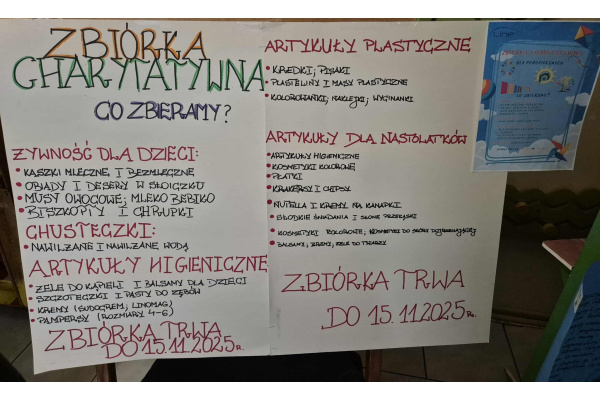 ZBIÓRKA
CHARYTATYWNA
CO ZBIERAMY?
ŻYWNOŚĆ DLA DZIECI:
• KASZKI MLECZNE I BEZMLECZNE
• OBIADY I DESERY W SŁOICZKU
• MUSY OWOCOWE; MLEKO BEBIKO
• BISZKOPTY I CHRUPKI
CHUSTECZKI:
• NAWILŻANE I NAWILŻANE WODĄ
ARTYKUŁY HIGIENICZNE
• ŻELE DO KĄPIELI I BALSAMY DLA DZIECI
• SZCZOTECZKI I PASTY DO ZĘBÓW
• KREMY (SUDOCREM, LINOMAG)
• PAMPERSY (ROZMIARY 4-6)
ZBIÓRKA TRWA
DO 15.11.2025r.
ARTYKUŁY PLASTYCZNE
• KREDKI; PISAKI
• PLASTELINY I MASY PLASTYCZNE
• KOLOROWANKI; NAKLEJKI; WYCINANKI
ARTYKUŁY DLA NASTOLATKÓW
• ARTYKUŁY HIGIENICZNE
• KOSMETYKI KOLOROWE
• PŁATKI
• KRAKERSY I CHIPSY
• NUTELLA I KREMY NA KANAPKI
• SŁODKIE ŚNIADANIA I SŁONE PRZEKĄSKI
• KOSMETYKI KOLOROWE, KOSMETYKI DO SKÓRY DOJRZEWAJĄCEJ
• BALSAMY, KREMY, ŻELE DO TWARZY
ZBIÓRKA TRWA
DO 15.11.2025r.
CO ZBIERAMY?